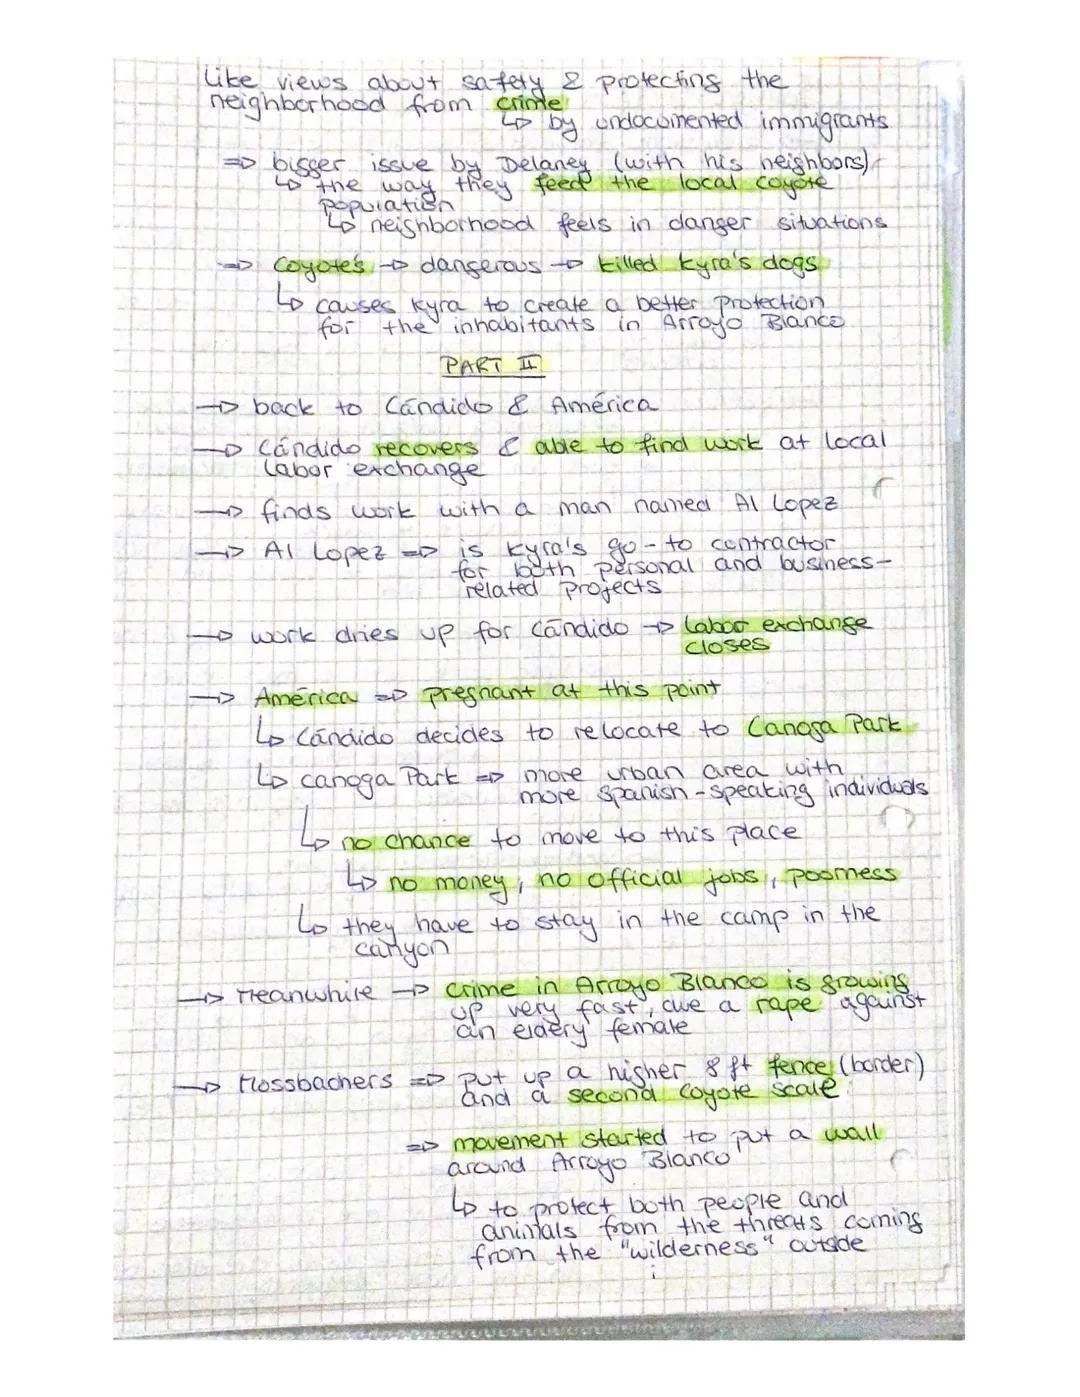 like views about safety & protecting the
neighborhood from crime
↳ by undocumented immigrants
=> bigger issue by Delaney (with his neighbors)
↳ the way they feed the local coyote
population
↳ neighborhood feels in danger situations
=> Coyote's -> dangerous -> killed Kyra's dogs
↳ causes Kyra to create a better protection
for the inhabitants in Arroyo Blanco
PART II
-> back to Cándido & América
-> Cándido recovers & able to find work at local
labor exchange
-> finds work with a man named Al Lopez
-> Al Lopez => is Kyra's go-to contractor
for both personal and business-
related projects
-> work dries up for Cándido -> labor exchange
closes
-> América => pregnant at this point
↳ Cándido decides to relocate to Canoga Park
↳ Canoga Park => more urban area with
more Spanish-speaking individuals
↳ no chance to move to this place
↳ no money, no official jobs, poorness
↳ they have to stay in the camp in the
canyon
-> Meanwhile -> crime in Arroyo Blanco is growing
up very fast, due a rape against
an eldery female
-> Mossbachers => put up a higher 8 ft fence (border)
and a second coyote scale
=> movement started to put a wall
around Arroyo Blanco
↳ to protect both people and
animals from the threats coming
from the "wilderness" outside